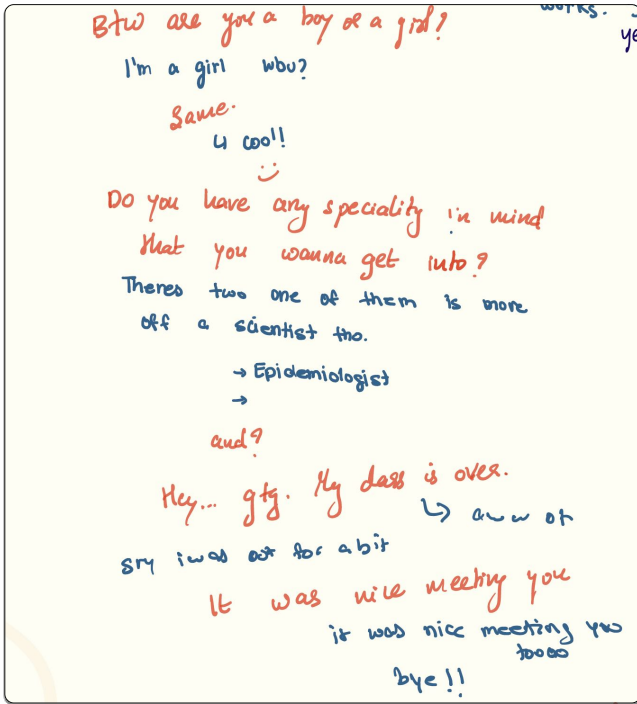 works.
ye
Btw are you a boy or a girl?
I'm a girl wbu?
Same.
u cool!
:)
Do you have any speciality in mind
that you wanna get into?
Theres two one of them is more
off a scientist tho.
→ Epidemiologist
→
and?
Hey... gtg. My class is over.
↳ aww ok
sry i was out for a bit
It was nice meeting you
it was nice meeting you
toooo
bye!!